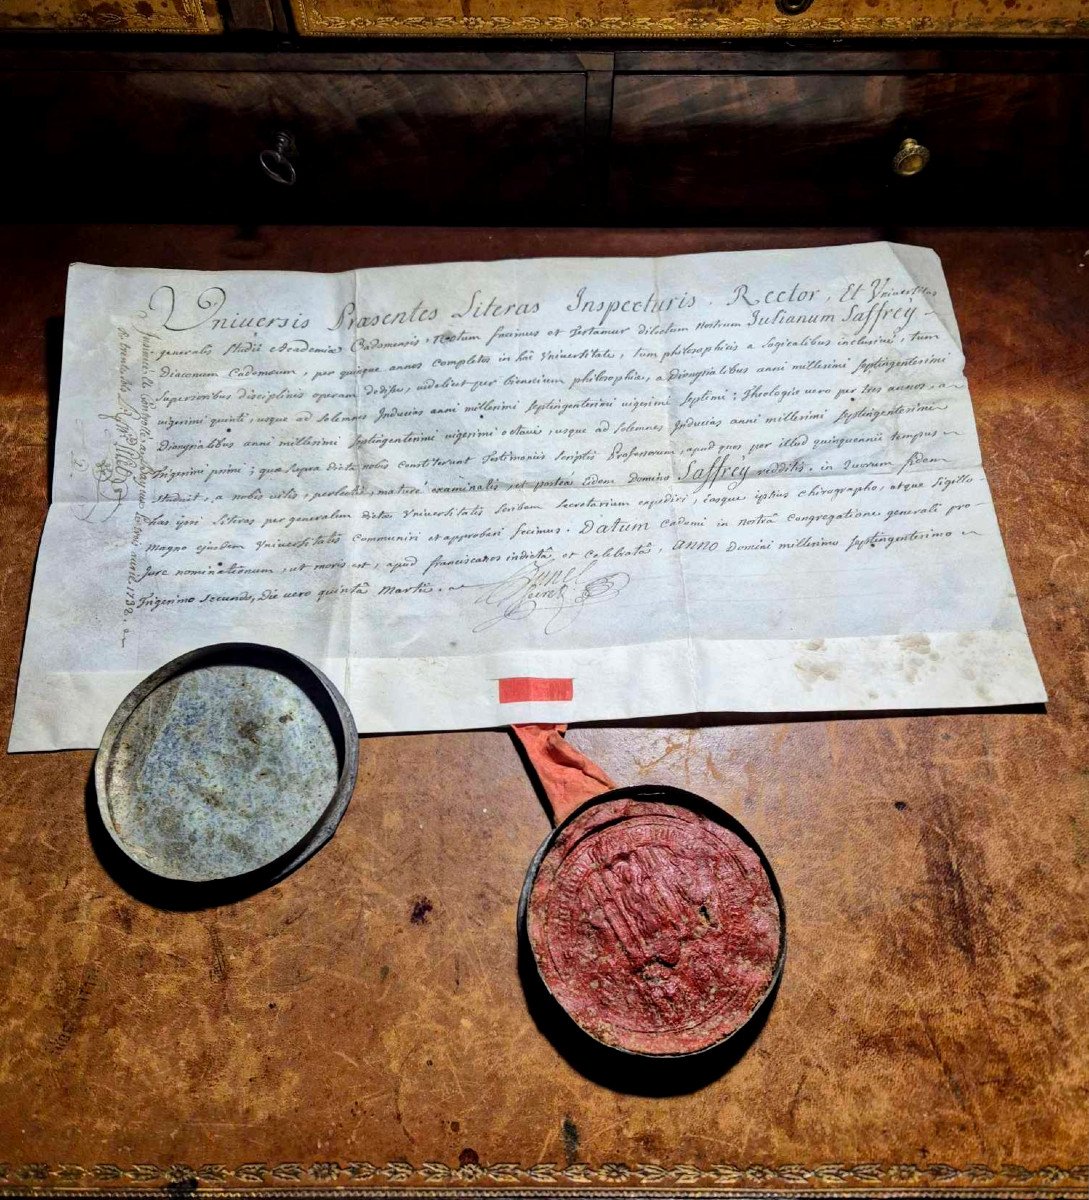 Universis Præsentes Literas Inspecturis, Rector, Et Universitas
generalis Studii Academiæ Cadomensis, Notum facimus et Testamur dilectum nostrum Julianum Saffrey
diaconum Cadomeum, per quinque annos completos in hâc Universitate, tum philosophicis a logicalibus inclusivè, tum
superioribus disciplinis operam dedisse, videlicet per biennium philosophiæ, a Dionysialibus anni millesimi septingentesimi
vigesimi quinti, usque ad solemnes Inducias anni millesimi septingentesimi vigesimi septimi; Theologiæ vero per tres annos, a
Dionysialibus anni millesimi septingentesimi vigesimi octavi, usque ad solemnes Inducias anni millesimi septingentesimi
Trigesimi primi; quæ supra dicta nobis constiterunt Testimoniis scriptis Professorum, apud quos per illud quinquennii tempus
studuit, a nobis visis, perlectis, maturè examinatis, et postea eidem domino Saffrey redditis. in quorum fidem
has ipsi Literas per generalem dictæ Universitatis scribam secretarium expediri, easque ipsius chirographo, atque sigillo
magno ejusdem Universitatis Communiri et approbari fecimus. Datum Cadomi in nostrâ Congregatione generali pro
Jure nominationum, ut moris est, apud franciscanos indictâ et celebratâ, anno Domini millesimo septingentesimo
Trigesimo secundo, die vero quintâ Martii.
1732.